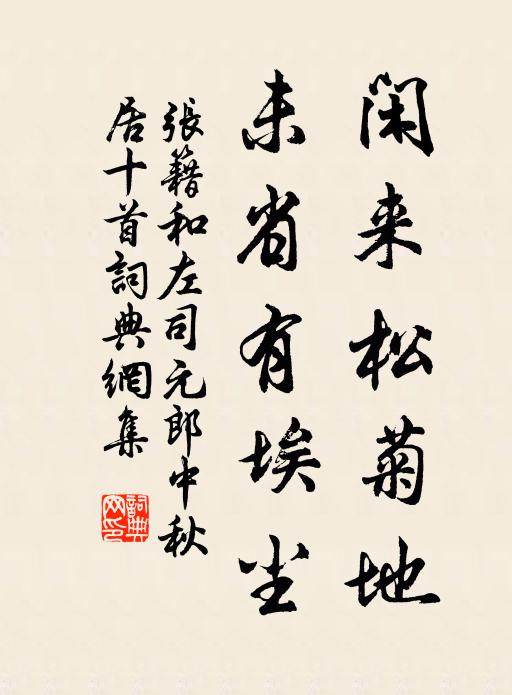 闲来松菊地
未省有埃尘
張籍和左司元郎中秋
居十首詞典網集
詞典网印